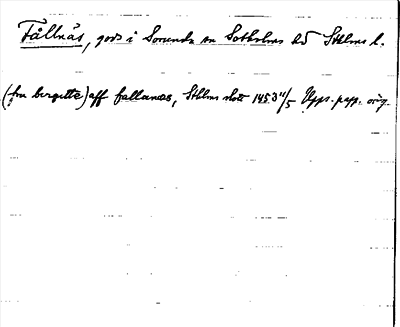 Fållnäs, gods i Sorunda sn Sotholms hd Sthlms l.
(fru birgitte) aff fallanæs, Sthlms slott 1453 11/5 Upps. papp. orig.